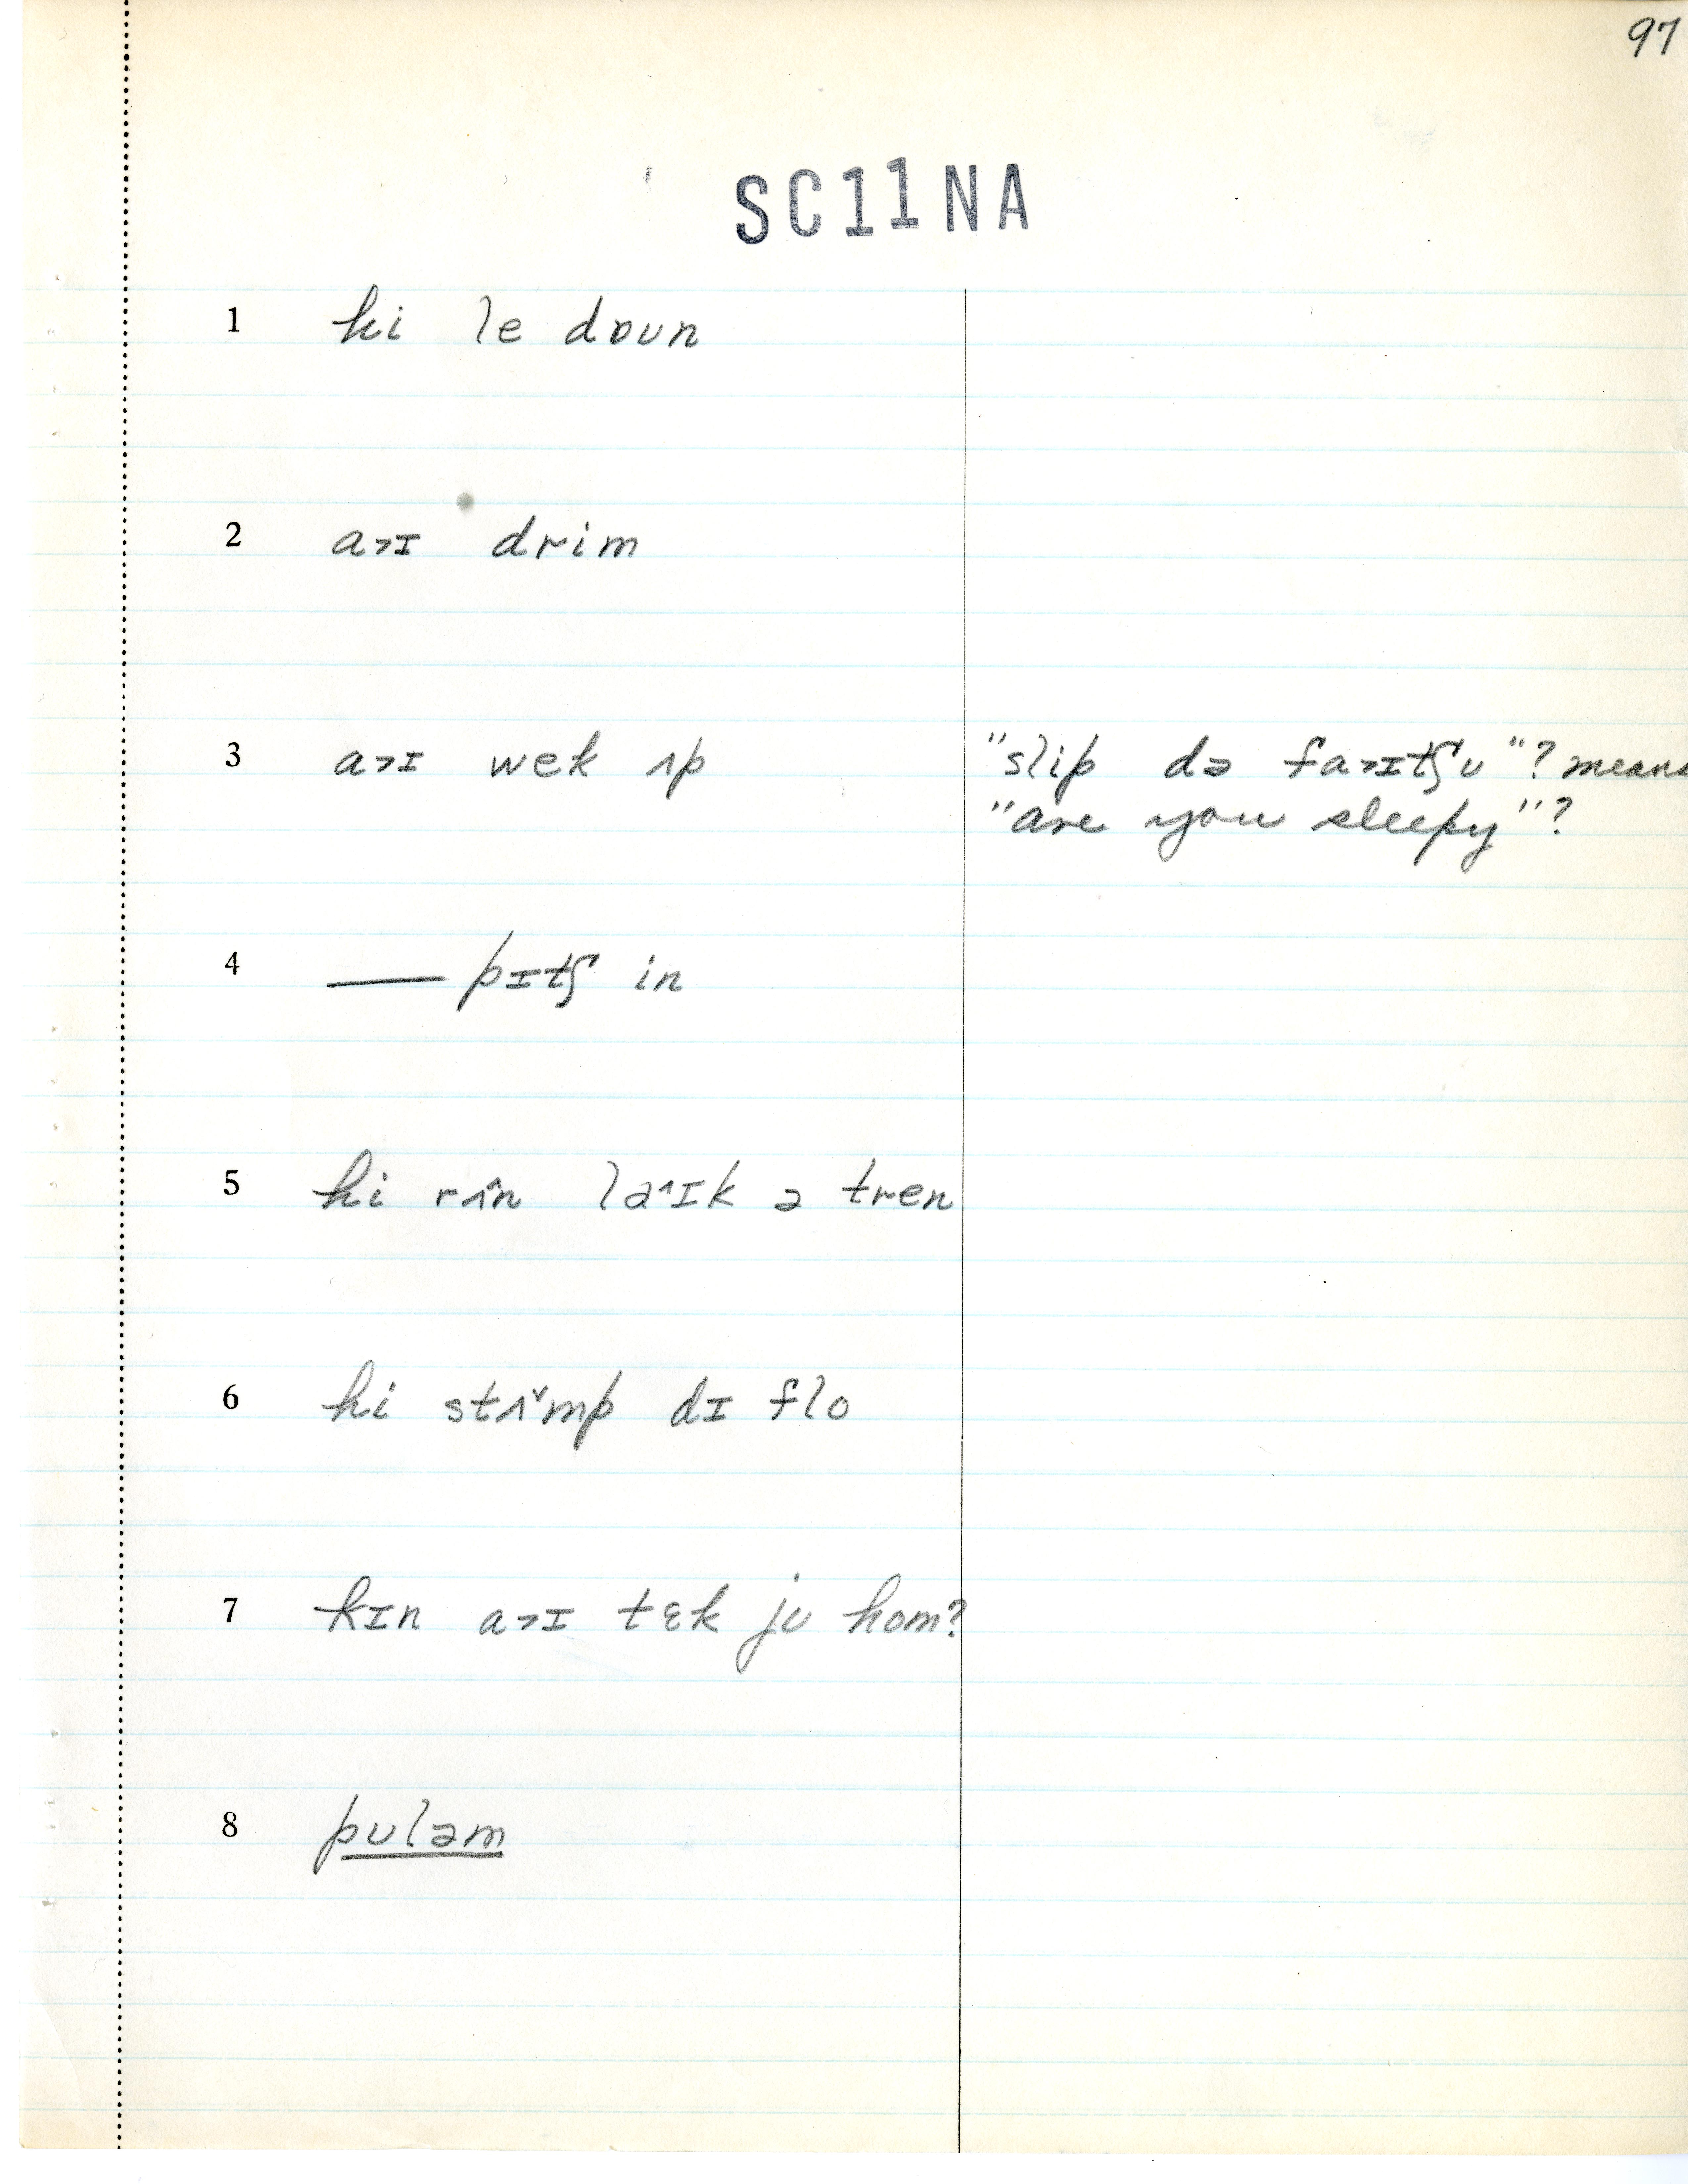 97
SC11NA
1 hi le dɒʊn
2 a˃ɪ drim
3 a˃ɪ wek ʌp "slip də fa˃ɪtʃʊ"? means
"are you sleepy"?
4 — pɪtʃ in
5 hi rʌ̂n la˄ɪk ə tren
6 hi stʌ˅mp dɪ flo
7 kɪn a˃ɪ tɛk jʊ hom?
8 pʊləm